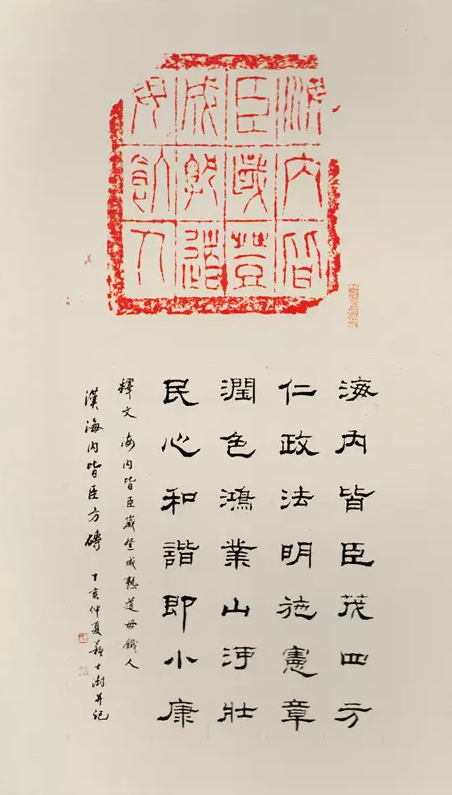 海内皆
臣歲登
成孰道
毋飢人
海內皆臣茂四方
仁政法明施憲章
潤色鴻業山河壯
民心和諧即小康
釋文 海内皆臣歲登成熟道毋饑人
漢海内皆臣方磚 丁亥仲夏蘇士澍并記